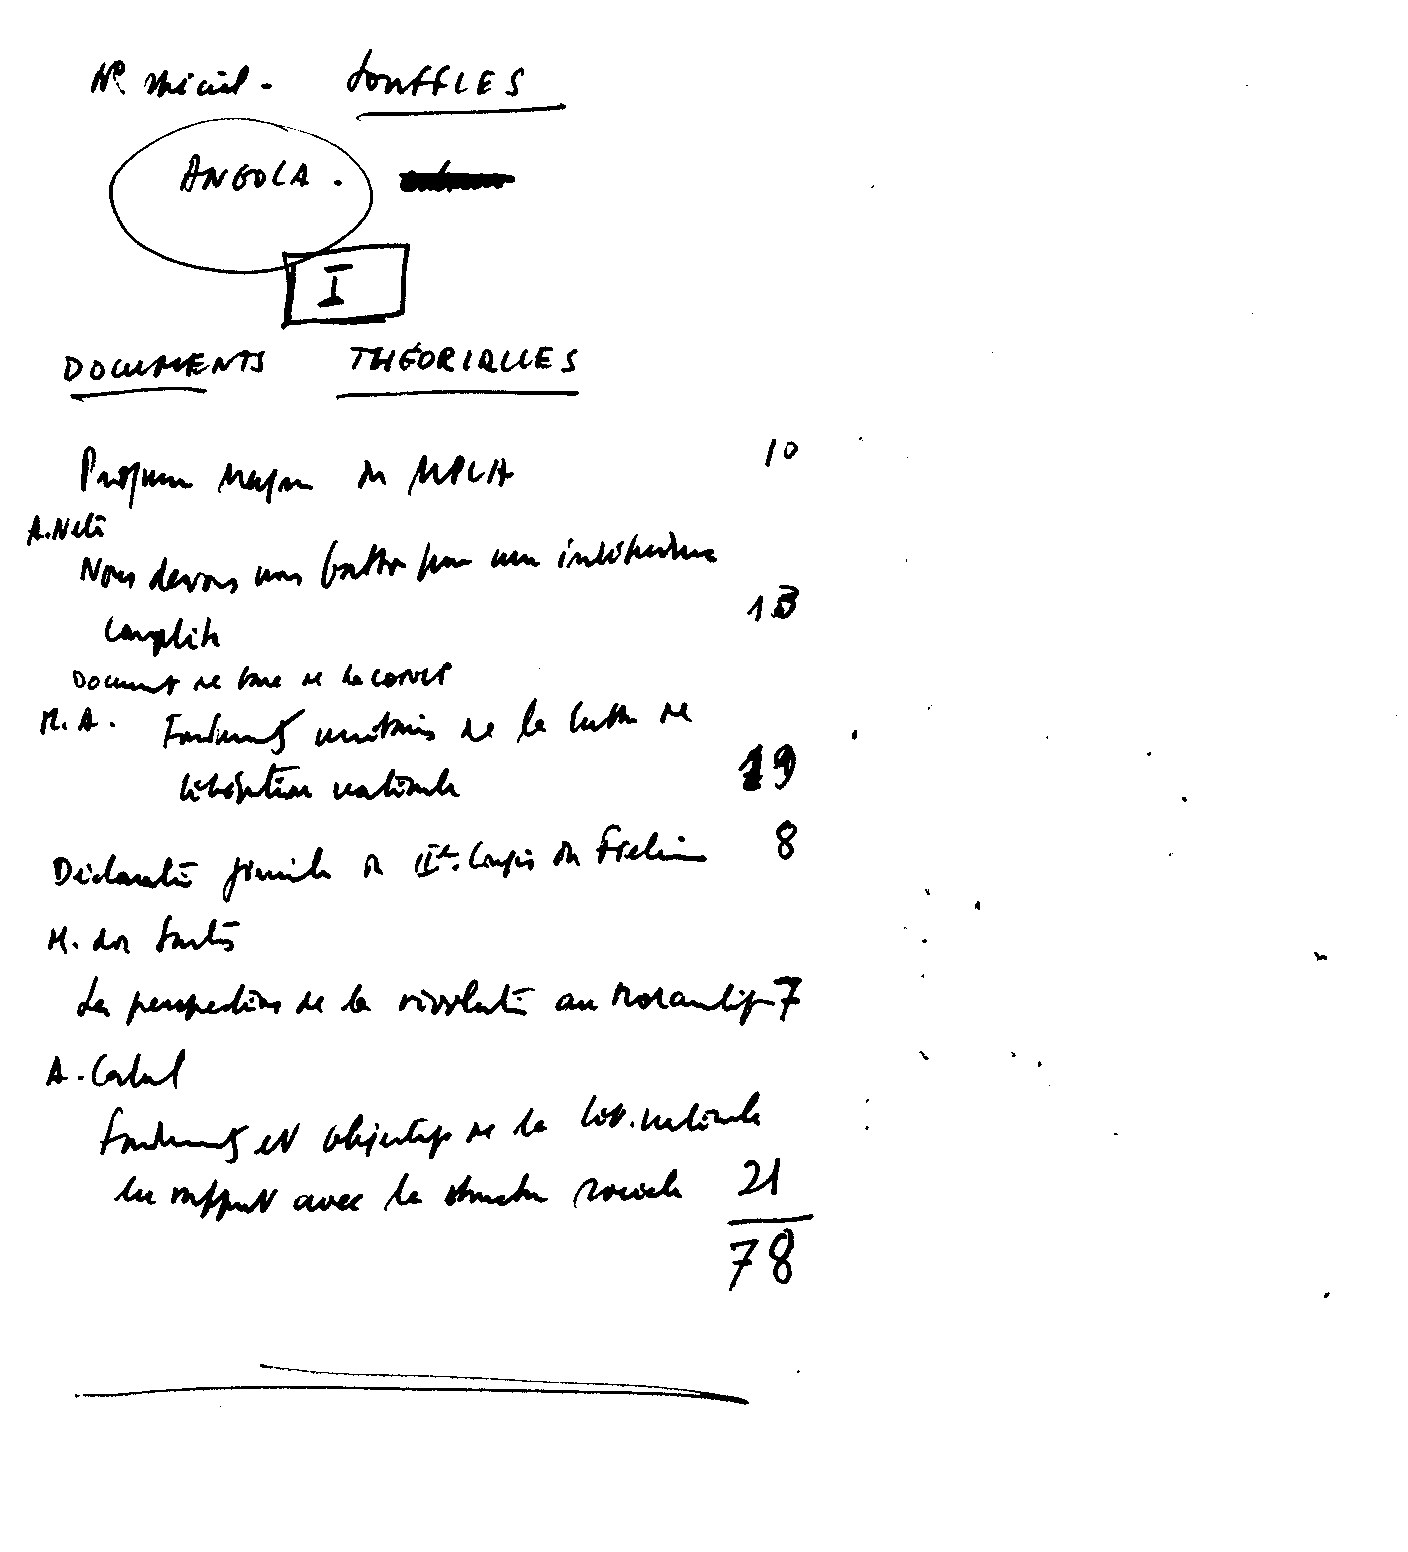 No. spécial. SOUFFLES
ANGOLA.
I
DOCUMENTS THÉORIQUES
Programme Majeur du MPLA 10
A. Neto
Nous devons nous battre pour une indépendance
complète 13
Document de base de la CONCP
M. A. Fondements unitaires de la lutte de
libération nationale 19
Déclaration finale du IIe. Congrès du Frelimo 8
M. dos Santos
Les perspectives de la révolution au Mozambique 7
A. Cabral
Fondements et objectifs de la lib. nationale
en rapport avec la structure sociale 21
78